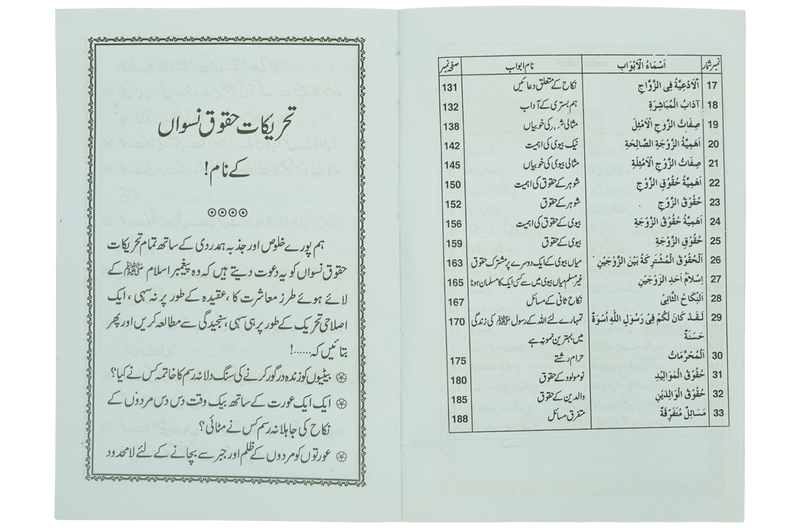 نمبر شمار	اَسْمَاءُ الْاَبْوَابِ	نام ابواب	صفحہ نمبر
17	اَلْاَدْعِيَةُ فِي الزَّوَّاجِ	نکاح کے متعلق دعائیں	131
18	آدَابُ الْمُبَاشَرَةِ	ہم بستری کے آداب	132
19	صِفَاتُ الزَّوْجِ الْاَمْثَلِ	مثالی شوہر کی خوبیاں	138
20	اَهَمِيَّةُ الزَّوْجَةِ الصَّالِحَةِ	نیک بیوی کی اہمیت	142
21	صِفَاتُ الزَّوْجِ الْاَمْثَلَةِ	مثالی بیوی کی خوبیاں	145
22	اَهَمِيَّةُ حُقُوْقِ الزَّوْجِ	شوہر کے حقوق کی اہمیت	150
23	حُقُوْقُ الزَّوْجِ	شوہر کے حقوق	152
24	اَهَمِيَّةُ حُقُوْقِ الزَّوْجَةِ	بیوی کے حقوق کی اہمیت	156
25	حُقُوْقِ الزَّوْجَةِ	بیوی کے حقوق	159
26	اَلْحُقُوْقُ الْمُشْتَرِكَةُ بَيْنَ الزَّوْجَيْنِ	میاں بیوی کے ایک دوسرے پر مشترک حقوق	163
27	اِسْلَامُ اَحَدِ الزَّوْجَيْنِ	غیر مسلم میاں بیوی میں سے کسی ایک کا مسلمان ہونا	165
28	اَلنِّكَاحُ الثَّانِيْ	نکاح ثانی کے مسائل	167
29	لَقَدْ كَانَ لَكُمْ فِيْ رَسُوْلِ اللهِ اُسْوَةٌ	تمہارے لئے اللہ کے رسول ﷺ کی زندگی	170
حَسَنَةٌ	میں بہترین نمونہ ہے
30	اَلْمُحَرَّمَاتُ	حرام رشتے	175
31	حُقُوْقُ الْمَوَالِيْدِ	نومولود کے حقوق	180
32	حُقُوْقُ الْوَالِدَيْنِ	والدین کے حقوق	185
33	مَسَائِلُ مُتَفَرِّقَةٌ	متفرق مسائل	188
تحریکات حقوق نسواں
کے نام!
ہم پورے خلوص اور جذبہ ہمدردی کے ساتھ تمام تحریکات
حقوق نسواں کو یہ دعوت دیتے ہیں کہ وہ پیغمبر اسلام ﷺ کے
لائے ہوئے طرز معاشرت کا، عقیدہ کے طور پر نہ سہی، ایک
اصلاحی تحریک کے طور پر ہی سہی، سنجیدگی سے مطالعہ کریں اور پھر
بتائیں کہ......!
بیٹیوں کو زندہ درگور کرنے کی سنگ دلانہ رسم کا خاتمہ کس نے کیا؟
ایک ایک عورت کے ساتھ بیک وقت دس دس مردوں کے
نکاح کی جاہلانہ رسم کس نے مٹائی؟
عورتوں کو مردوں کے ظلم اور جبر سے بچانے کے لئے لامحدود